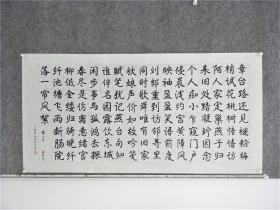 章台路还见褪粉梅
梢试花桃树愔愔坊
陌人家定巢燕子归
来旧处黯凝伫因念
个人痴小乍窥门户
侵晨浅约宫黄障风
映袖盈盈笑语前度
刘郎重到访邻寻里
同时歌舞唯有旧家
秋娘声价如故吟笺
赋笔犹记燕台句知
谁伴名园露饮东城
闲步事与孤鸿去探
春尽是伤离意绪官
柳低金缕归骑晚纤
纤池塘飞雨断肠院
落一帘风絮